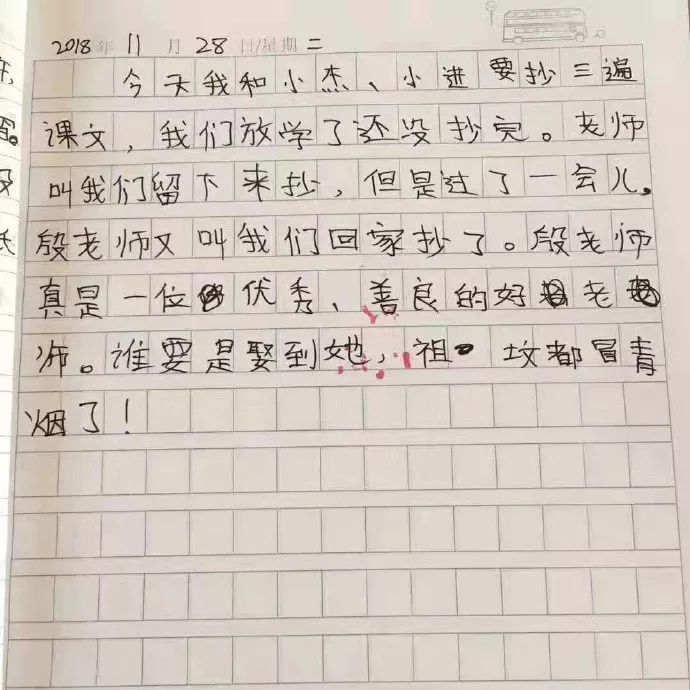 2018年11月28日/星期二
今天我和小杰、小进要抄三遍
课文，我们放学了还没抄完。老师
叫我们留下来抄，但是过了一会儿。
殷老师又叫我们回家抄了。殷老师
真是一位优秀、善良的好老
师。谁要是娶到她，祖坟都冒青
烟了！